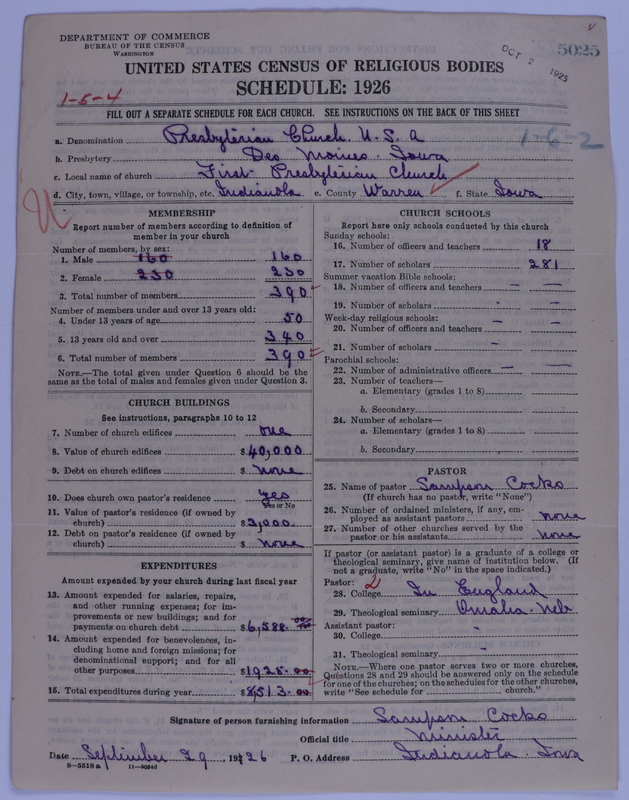 DEPARTMENT OF COMMERCE
BUREAU OF THE CENSUS
WASHINGTON
OCT 2 1925
5025
UNITED STATES CENSUS OF RELIGIOUS BODIES
SCHEDULE: 1926
1-5-4
FILL OUT A SEPARATE SCHEDULE FOR EACH CHURCH. SEE INSTRUCTIONS ON THE BACK OF THIS SHEET
1-6-2
a. Denomination Presbyterian Church. U.S.A
b. Presbytery Des Moines. Iowa
c. Local name of church First Presbyterian Church
d. City, town, village, or township, etc. Indianola e. County Warren f. State Iowa
MEMBERSHIP
Report number of members according to definition of
member in your church
Number of members, by sex:
1. Male 160 160
2. Female 230 230
3. Total number of members 390
Number of members under and over 13 years old:
4. Under 13 years of age 50
5. 13 years old and over 340
6. Total number of members 390
NOTE.—The total given under Question 6 should be the
same as the total of males and females given under Question 3.
CHURCH BUILDINGS
See instructions, paragraphs 10 to 12
7. Number of church edifices one
8. Value of church edifices $40,000
9. Debt on church edifices $ none
10. Does church own pastor's residence yes
Yes or No
11. Value of pastor's residence (if owned by
church) $3,000
12. Debt on pastor's residence (if owned by
church) $ none
EXPENDITURES
Amount expended by your church during last fiscal year
13. Amount expended for salaries, repairs,
and other running expenses; for im-
provements or new buildings; and for
payments on church debt $6,588 00/100
14. Amount expended for benevolences, in-
cluding home and foreign missions; for
denominational support; and for all
other purposes $1925.00
15. Total expenditures during year $8513.00
CHURCH SCHOOLS
Report here only schools conducted by this church
Sunday schools:
16. Number of officers and teachers 18
17. Number of scholars 281
Summer vacation Bible schools:
18. Number of officers and teachers — —
19. Number of scholars - —
Week-day religious schools:
20. Number of officers and teachers — -
21. Number of scholars -
Parochial schools:
22. Number of administrative officers — —
23. Number of teachers—
a. Elementary (grades 1 to 8)
b. Secondary
24. Number of scholars—
a. Elementary (grades 1 to 8)
b. Secondary
PASTOR
25. Name of pastor Sampson Cocks
(If church has no pastor, write "None")
26. Number of ordained ministers, if any, em-
ployed as assistant pastors none
27. Number of other churches served by the
pastor or his assistants none
If pastor (or assistant pastor) is a graduate of a college or
theological seminary, give name of institution below. (If
not a graduate, write "No" in the space indicated.)
Pastor: 2
28. College In England
29. Theological seminary Omaha. Neb
Assistant pastor:
30. College -
31. Theological seminary -
NOTE.—Where one pastor serves two or more churches,
Questions 28 and 29 should be answered only on the schedule
for one of the churches; on the schedules for the other churches,
write "See schedule for church."
Signature of person furnishing information Sampson Cocks
Official title Minister
Date September 29, 1926 P. O. Address Indianola. Iowa
8—5518a 11—9664d